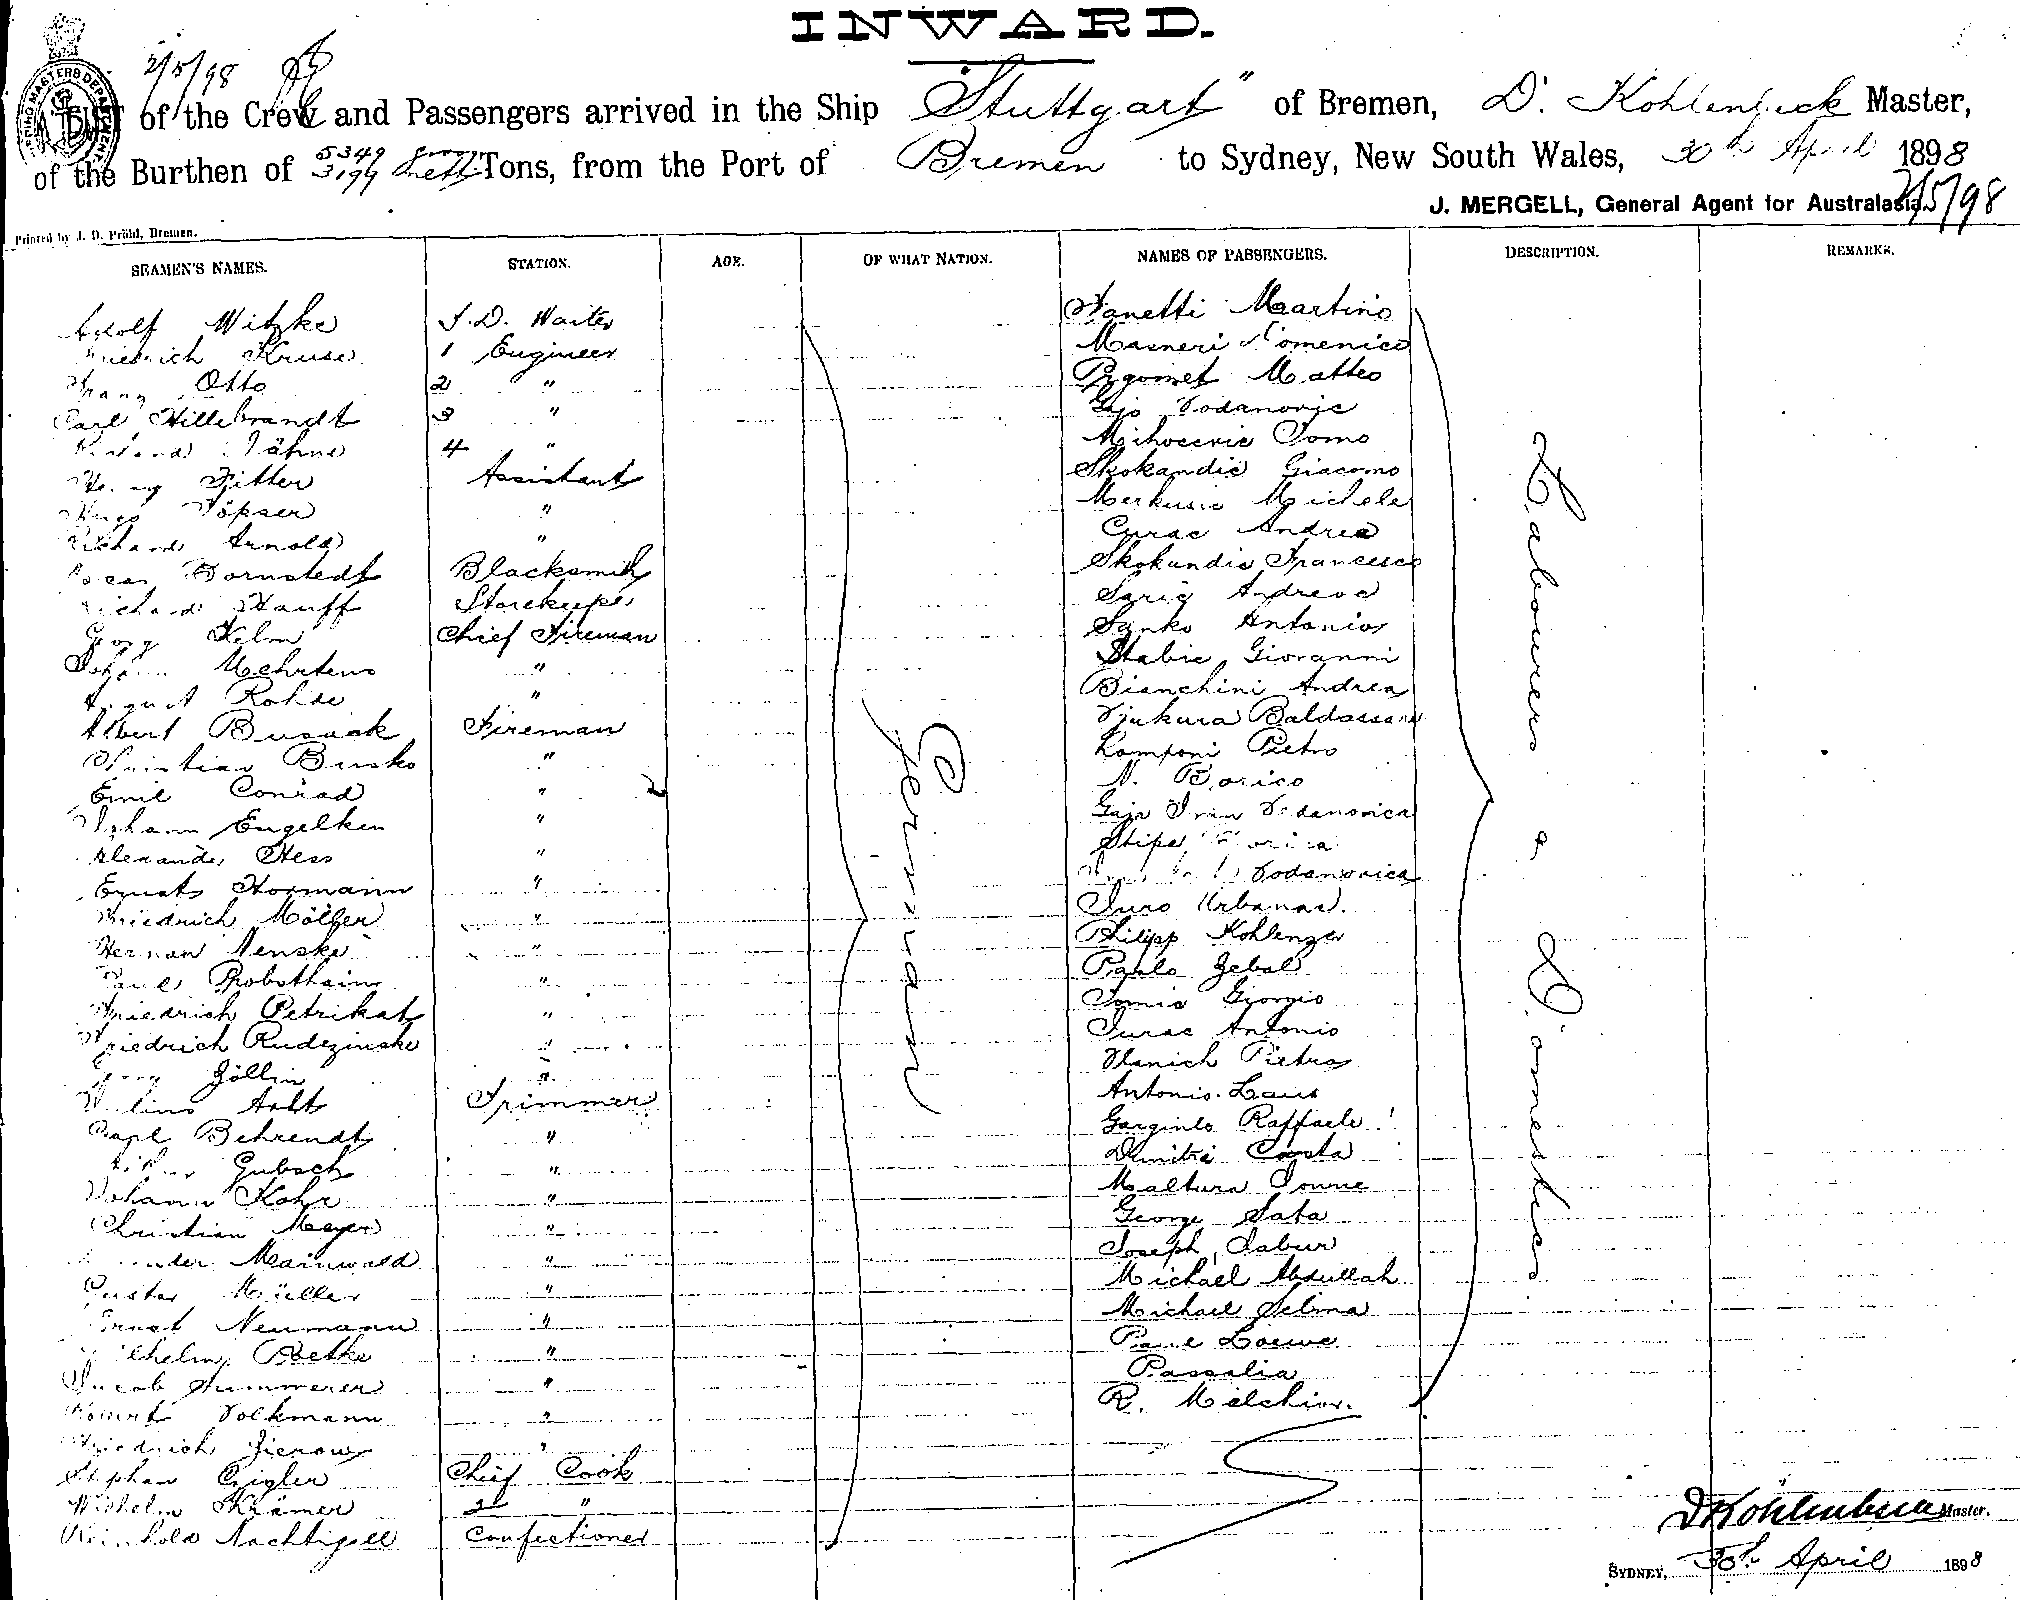 INWARD.
2/5/98
LIST of the Crew and Passengers arrived in the Ship "Stuttgart" of Bremen, D. Kohlenbeck Master,
of the Burthen of 5349 gross 3199 nett Tons, from the Port of Bremen to Sydney, New South Wales, 30th April 1898
J. MERGELL, General Agent for Australasia. 2/5/98
Printed by J. D. Pröhl, Bremen.
SEAMEN'S NAMES. STATION. AGE. OF WHAT NATION. NAMES OF PASSENGERS. DESCRIPTION. REMARKS.
Adolf Witzke S.D. Waiter Zanetti Martino
Friedrich Kruse 1 Engineer Masneri Domenico
Franz Otto 2 " Matteo
Carl Hillebrandt 3 " Gajo Vodanovic
Jähne 4 " Tomo
Fitter Assistant Skokandic Giacomo
Hugo " Merkusic Michele
Richard Arnold " Curac Andrea
Oscar Bornstedt Blacksmith Skokandic Francesco
Richard Hauff Storekeeper Saric
Georg Helm Chief Fireman Sanko Antonio
Johann Mehrtens " Stabic Giovanni
August Rohde " Bianchini Andrea
Albert Busack Fireman Baldassare
Christian Busko " Komponi Pietro
Emil Conrad " N. Borico
Johann Engelken " Gaja Ivan Vodanovica
Alexander Hess " Stipe
Hormann " Vodanovica
Friedrich " Juro Urbanac.
Herman Nenske " Philipp Kohlenzer
Paul Probsthain " Paulo Zebal
Friedrich Petrikat " Tomic Giorgio
Friedrich Rudezinski " Curac Antonio
Georg Zöllin " Vlanich Pietro
Arlt Trimmer Antonio Laus
Carl Behrendt " Garginlo Raffaele
Gubsch " Dimitri Costa
Johann Kohr "
Christian Meyer " George Saba
Mainwald " Joseph Jabur
Gustav Müller " Michael Abdullah
Ernst Neumann " Michael Selma
Wilhelm Poetke " Paul Loewe
Jacob Summerer " Passalia
Robert Volkmann " R. Melchior.
Friedrich Zierow "
Stephan Czigler Chief Cook
Wilhelm Krämer 2 "
Reinhold Nachtigall Confectioner
German
Labourers & Domestics
D Kohlenbeck Master.
SYDNEY, 30th April 1898